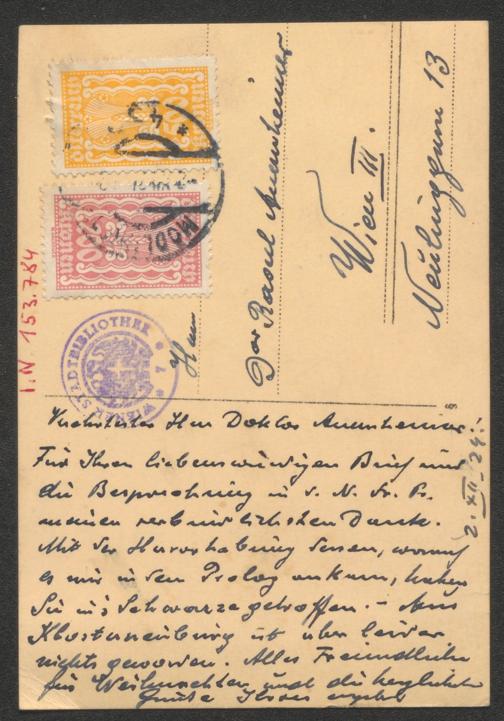 I.N. 153.784
WIENER STADTBIBLIOTHEK
MÖDL
Herrn
Dor Raoul Auernheimer
Wien III.
Neulinggasse 13
2. XII. 24.
Verehrtester Herr Doktor Auernheimer!
Für Ihren liebenswürdigen Brief und
die Besprechung in d. N. Fr. Pr.
meinen verbindlichsten Dank.
Mit der Hervorhebung dessen, worauf
es mir in dem Prolog ankam, haben
Sie in's Schwarze getroffen. – Aus
Klosterneuburg ist aber leider
nichts geworden. Alles Freundliche
für Weihnachten und die herzlichsten
Grüße Ihres